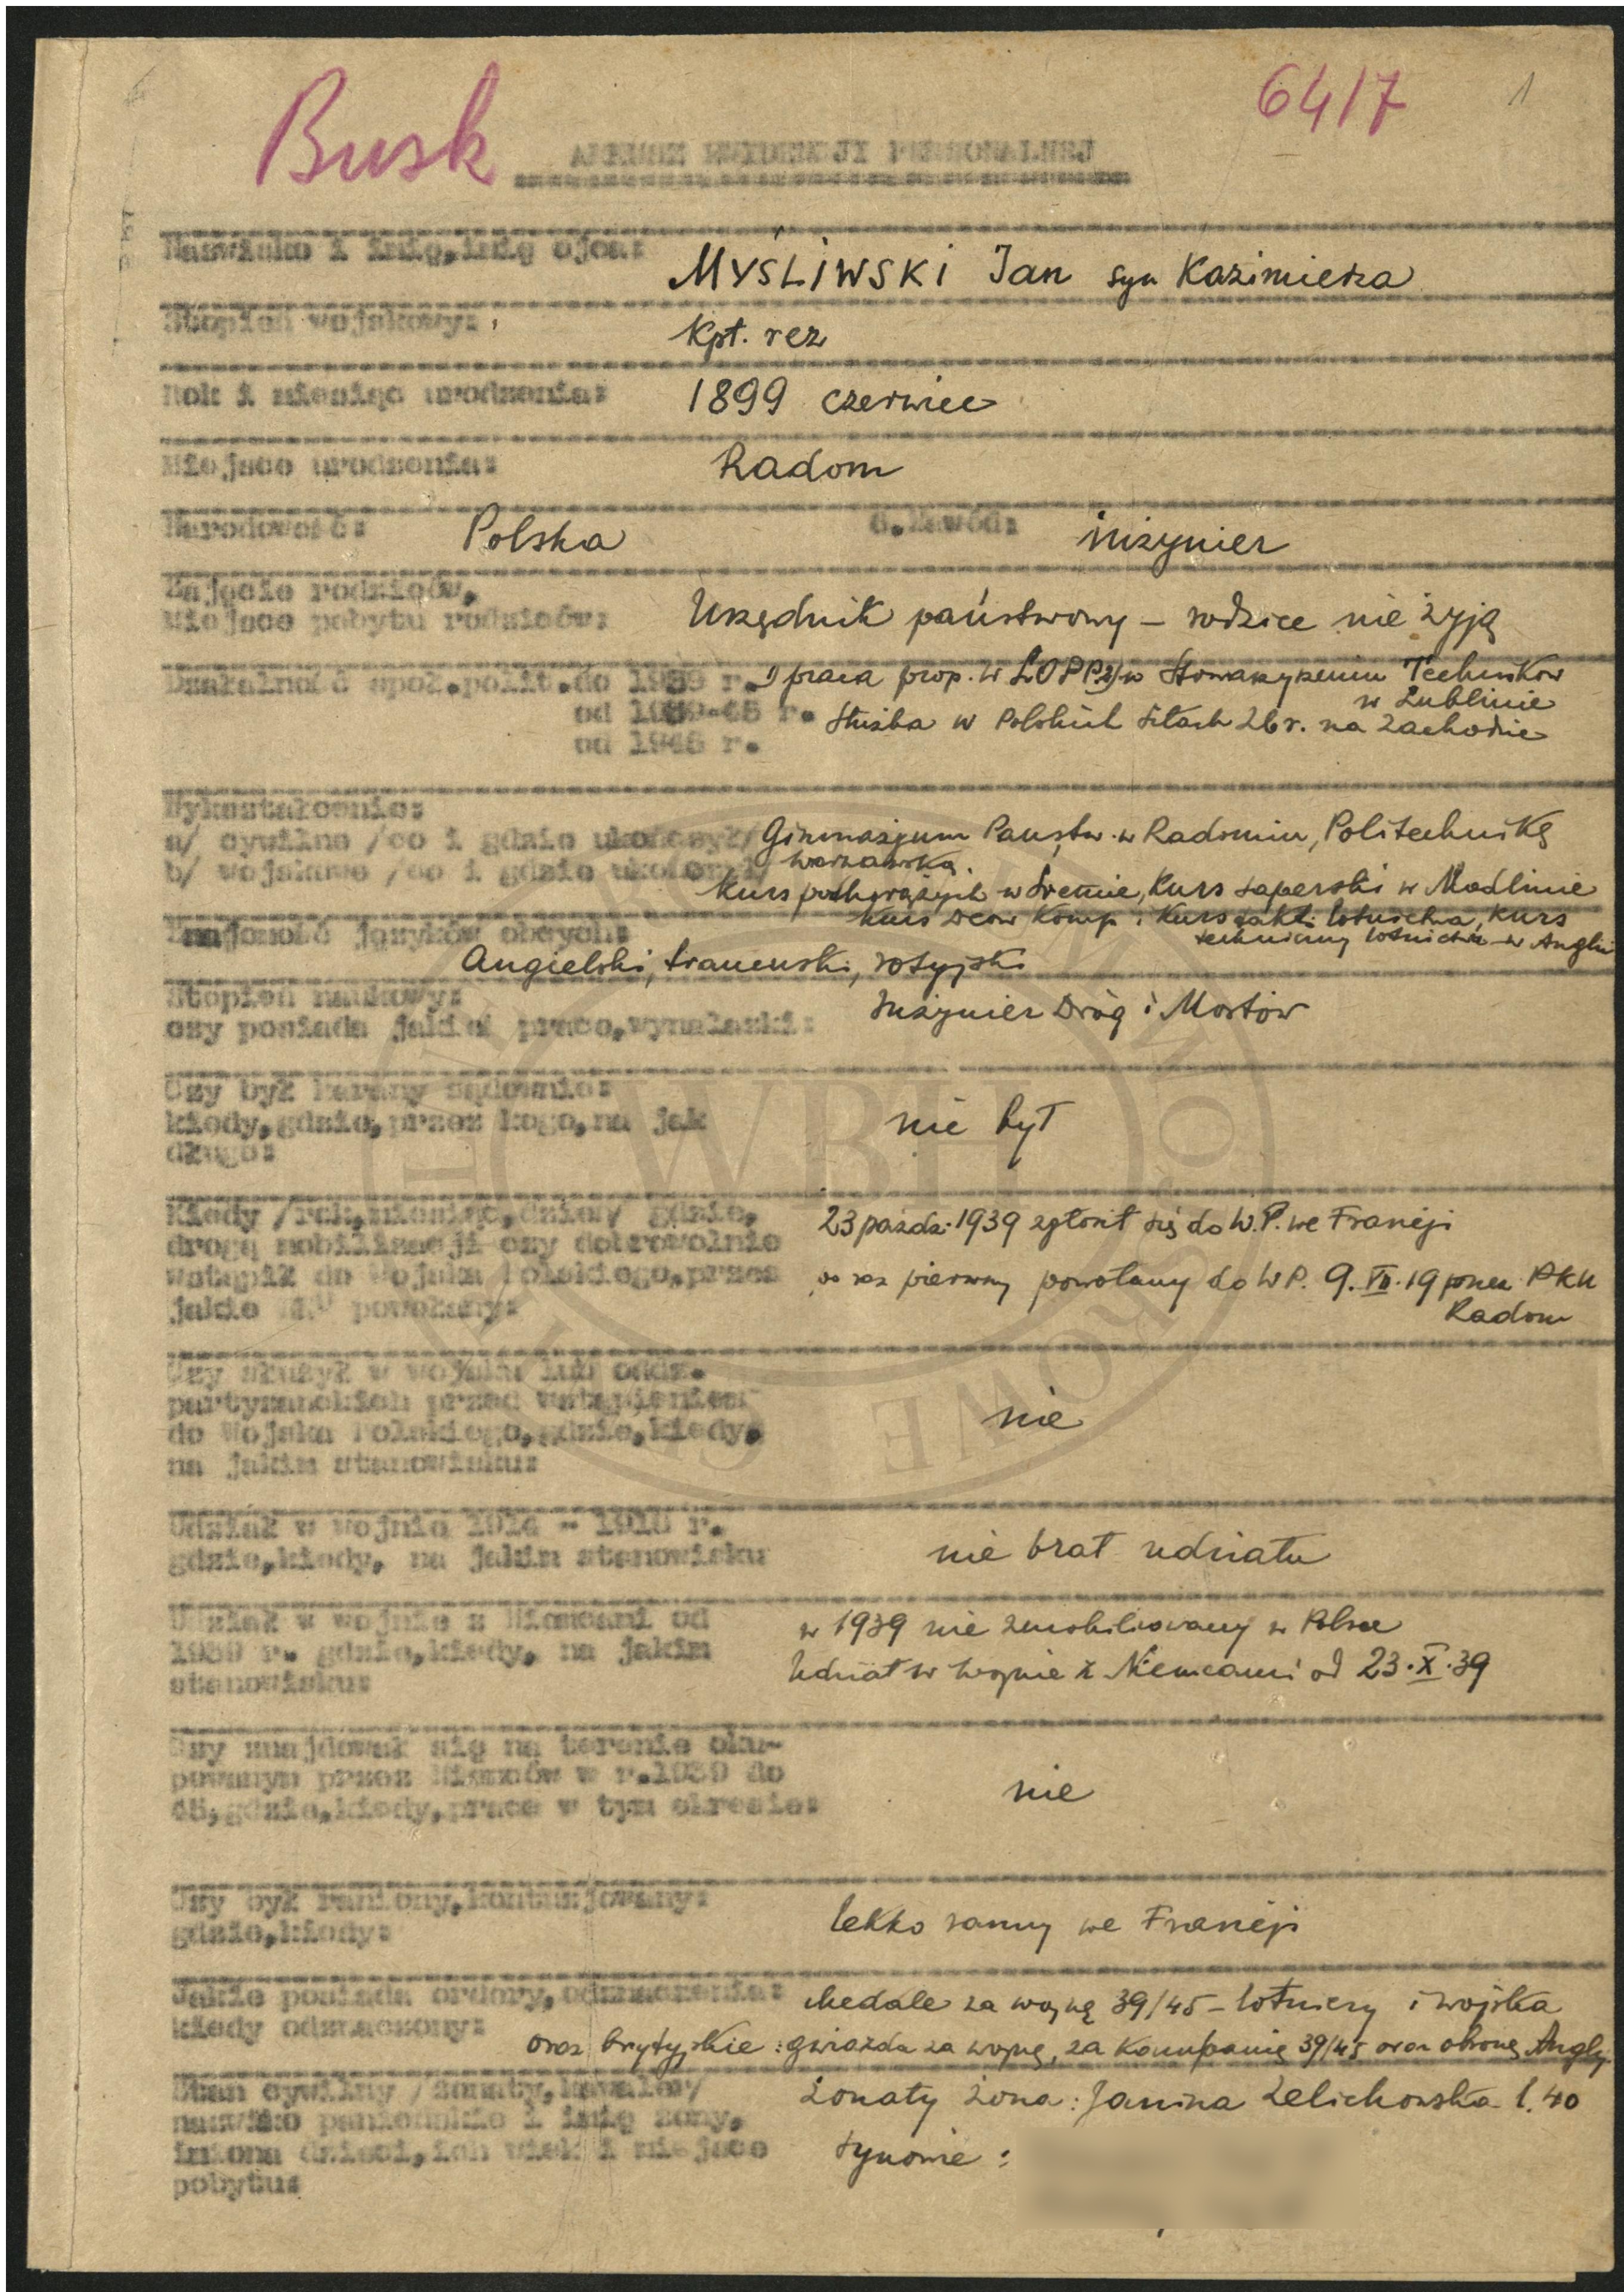 Busk
6417
1
ARKUSZ EWIDENCJI PERSONALNEJ
Nazwisko i imię, imię ojca: MYŚLIWSKI Jan syn Kazimierza
Stopień wojskowy: Kpt. rez
Rok i miesiąc urodzenia: 1899 czerwiec
Miejsce urodzenia: Radom
Narodowość: Polska 6. Zawód: inżynier
Zajęcie rodziców,
Miejsce pobytu rodziców: Urzędnik państwowy – rodzice nie żyją
Działalność społ.polit.do 1939 r. 1) praca prop. w LOPP 2) w Stowarzyszeniu Techników
w Lublinie
od 1939-45 r. służba w Polskich Siłach Zbr. na Zachodzie
od 1945 r.
Wykształcenie:
a/ cywilne /co i gdzie ukończył/ Gimnazjum Państw. w Radomiu, Politechnikę
warszawską.
b/ wojskowe /co i gdzie ukończył/ Kurs podchorążych w Śremie, Kurs saperski w Modlinie
kurs dców komp. i Kurs takt. lotnictwa, kurs
techniczny lotnictwa w Anglii
Znajomość języków obcych:
Angielski, francuski, rosyjski
Stopień naukowy:
czy posiada jakieś prace,wynalazki: Inżynier Dróg i Mostów
Czy był karany sądownie:
kiedy,gdzie,przez kogo,na jak nie był
długo:
Kiedy /rok,miesiąc,dzień/ gdzie, 23 paźdz. 1939 zgłosił się do W.P. we Francji
drogą mobilizacji czy dobrowolnie
wstąpił do Wojska Polskiego,przez po raz pierwszy powołany do WP. 9.VII.19 przez PKU
jakie powołany: Radom
Czy służył w wojsku lub oddz.
partyzanckich przed wstąpieniem
do Wojska Polskiego,gdzie,kiedy, nie
na jakim stanowisku:
Udział w wojnie 1914 - 1918 r.
gdzie,kiedy, na jakim stanowisku nie brał udziału
Udział w wojnie z Niemcami od w 1939 nie zmobilizowany w Polsce
1939 r. gdzie,kiedy, na jakim Udział w wojnie z Niemcami od 23.X.39
stanowisku:
Czy znajdował się na terenie oku-
powanym przez Niemców w r.1939 do
45,gdzie,kiedy,praca w tym okresie: nie
Czy był raniony,kontuzjowany:
gdzie,kiedy: lekko ranny we Francji
Jakie posiada ordery,odznaczenia: Medale za wojnę 39/45 – lotniczy i wojska
kiedy odznaczony: oraz brytyjskie: gwiazda za wojnę, za kampanię 39/45 oraz obronę Anglji
Stan cywilny /żonaty,kawaler/ żonaty żona: Janina Zelichowska l. 40
nazwisko panieńskie i imię żony,
imiona dzieci,ich wiek i miejsce synowie:
pobytu:
WBH